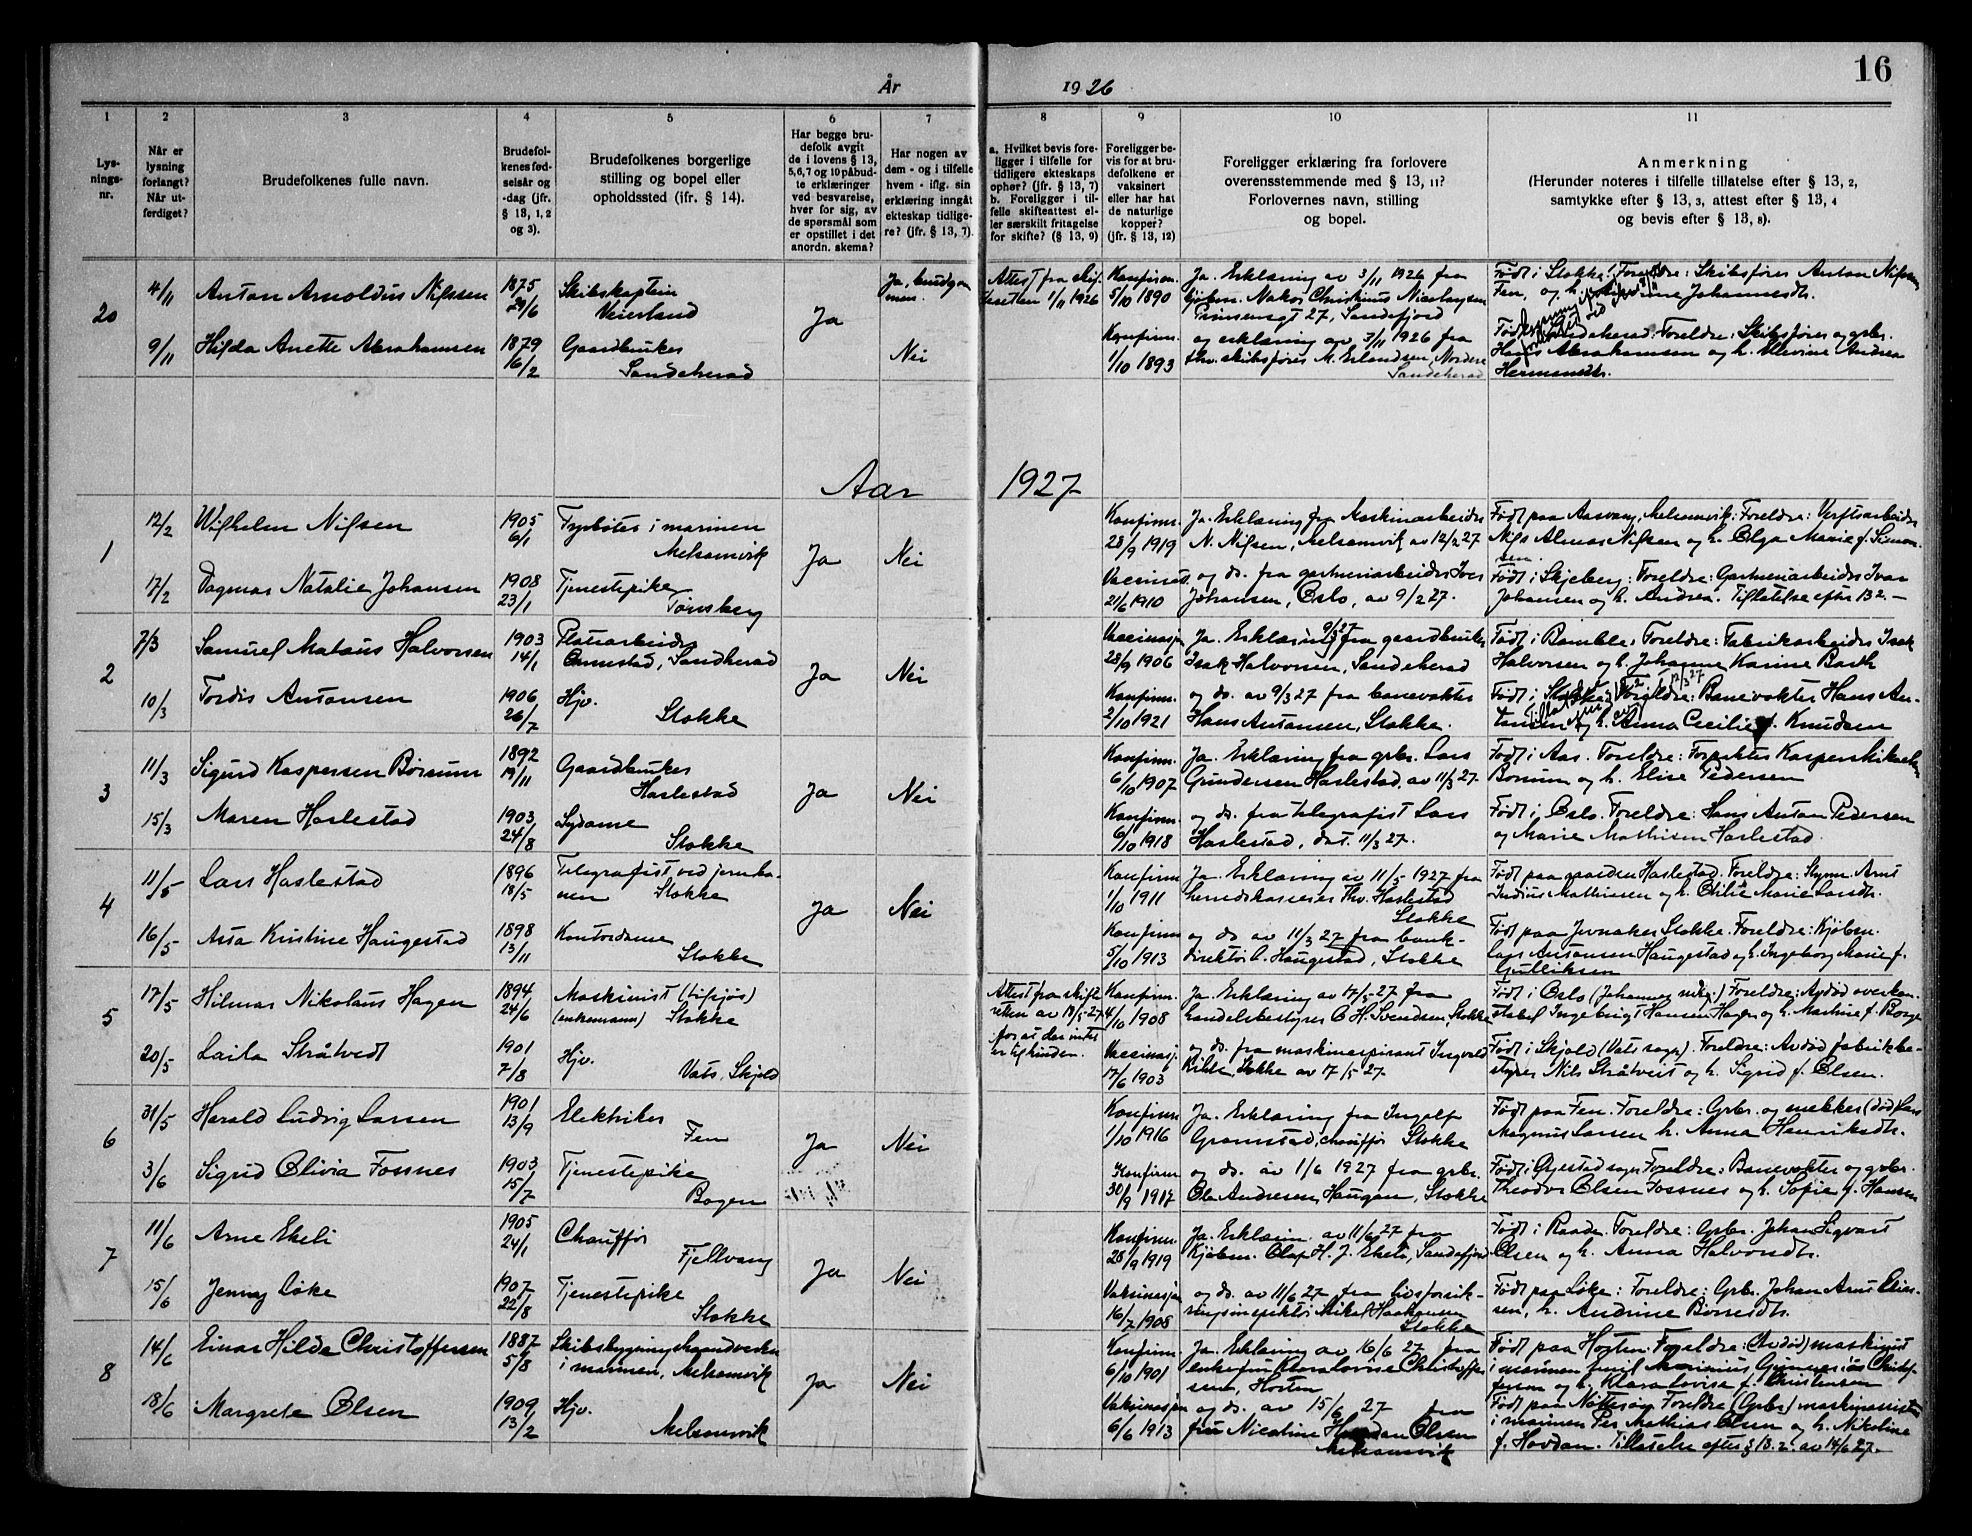 År 1926
16
1 2 3 4 5 6 7 8 9 10 11
Lys-
nings-
nr.
Når er
lysning
forlangt?
Når ut-
ferdiget?
Brudefolkenes fulle navn.
Brudefol-
kenes fød-
selsår og
-dag (jfr.
§ 13, 1, 2
og 3).
Brudefolkenes borgerlige
stilling og bopel eller
opholdssted (jfr. § 14).
Har begge bru-
defolk avgit
de i lovens § 13,
5,6,7 og 10 påbud-
te erklæringer
ved besvarelse,
hver for sig, av
de spørsmål som
er opstillet i det
anordn. skema?
Har nogen av
dem - og i tilfelle
hvem - iflg. sin
erklæring inngåt
ekteskap tidlige-
re? (jfr. § 13, 7).
a. Hvilket bevis fore-
ligger i tilfelle for
tidligere ekteskaps
ophør? (jfr. § 13, 7)
b. Foreligger i til-
felle skifteattest el-
ler særskilt fritagelse
for skifte? (§ 13, 9)
Foreligger be-
vis for at bru-
defolkene er
vaksinert
eller har hat
de naturlige
kopper?
(jfr. § 13, 12)
Foreligger erklæring fra forlovere
overensstemmende med § 13, 11?
Forlovernes navn, stilling
og bopel.
Anmerkning
(Herunder noteres i tilfelle tillatelse efter § 13, 2,
samtykke efter § 13, 3, attest efter § 13, 4
og bevis efter § 13, 8).
20
4/11 Anton Arnoldus Nilssen 1875 29/6 Skibskaptein
Veierland
Ja
Ja, brudgom-
men.
Attest fra skif-
teretten 1/11 1926
Konfirm.
5/10 1890
Ja. Erklæring av 3/11 1926 fra
kjøbm. Nakor Christinus Nicolaysen
Prinsensgt 27, Sandefjord
Født i Stokke. Foreldre: Skibsfører Anton Nilssen
Fen, og h. Johannesdtr.
9/11 Hilda Anette Abrahamsen 1879 16/2 Gaardbruker
Sandeherad
Nei
Konfirm.
1/10 1893
og erklæring av 3/11 1926 fra
fhv. skibsfører M. Erlandsen, Nordere
Sandeherad
Født i Sandeherad. Foreldre: Skibsfører og gbr.
Hans Abrahamsen og h. Allevine Andrea
Hermansdtr.
Aar 1927
1
12/2 Wilhelm Nilsen 1905 6/1 Fyrbøter i marinen
Melsomvik
Ja Nei
Konfirm.
28/9 1919
Ja. Erklæring fra Maskinarbeider
N. Nilsen, Melsomvik av 12/2 27
Født paa Aasvang, Melsomvik: Foreldre: Verftsarbeider
Nils Almar Nilsen og h. Olga Marie f. Simon-
sen.
17/2 Dagmar Natalie Johansen 1908 23/1 Tjenestepike
Tønsberg
Vaccinat.
21/6 1910
og do. fra gartneriarbeider Iver
Johansen, Oslo, av 9/2 27.
Født i Skjeberg: Foreldre: Gartneriarbeider Ivar
Johansen og h. Andrea. Tillatelse efter 13 2. —
2
7/3 Samuel Mataus Halvorsen 1903 14/1 Platearbeider
Onnestad, Sandherad
Ja Nei
Vaccinasjon
28/9 1906
Ja. Erklæring 9/3 27 fra gaardbruker
Isak Halvorsen, Sandeherad
Født i Bamble, Foreldre: Fabrikarbeider Isak
Halvorsen og h. Johanne Karine Barth
10/3 Tordis Antonsen 1906 26/7 Hjv.
Stokke
Konfirm.
2/10 1921
og do. av 9/3 27 fra banevokter
Hans Antonsen, Stokke.
Født i Stokke, Foreldre: Banevokter Hans An-
tonsen og h. Anna Cecilie f. Knudsen
12/3 27
3
11/3 Sigurd Kaspersen Børsum 1892 19/11 Gaardbruker
Haslestad
Ja Nei
Konfirm.
6/10 1907
Ja. Erklæring fra gbr. Lars
Gundersen Haslestad, av 11/3 27.
Født i Aas. Foreldre: Forpakter Kasper
Borsum og h. Elise Pedersen
15/3 Maren Haslestad 1903 24/8 Sydame
Stokke
Konfirm.
6/10 1918
og do. fra telegrafist Lars
Haslestad, dat. 11/3 27.
Født i Oslo. Foreldre: Hans Anton Pedersen
og Marie Mathisen Haslestad.
4
11/5 Lars Haslestad 1896 18/5 Telegrafist ved jernba-
nen Stokke
Ja Nei
Konfirm
1/10 1911
Ja. Erklæring av 11/5 1927 fra
herredskasserer Thv. Haslestad
Stokke
Født paa gaarden Haslestad. Foreldre: Styrm. Arnt
Julius Mathiasen og h. Otilie Marie Larsdtr.
16/5 Asta Kristine Haugestad 1898 13/11 Kontordame
Stokke
Konfirm
5/10 1913
og do av 11/3 27 fra bank-
direktør L. Haugestad, Stokke
Født paa Jernaker Stokke. Foreldre: Kjøbm.
Lars Antonsen Haugestad og h. Ingeborg Marie f.
Gulliksen
5
17/5 Hilmar Nikolaus Hagen 1894 24/6 Maskinist (tilsjøs)
(enkemann) Stokke
Attest fra skifte-
retten av 18/5 27
for at der intet
er til hinder.
Konfirm.
4/10 1908
Ja. Erklæring av 17/5 27 fra
handelsbestyrer O. H. Svendsen, Stokke
Født i Oslo (Johannes menigh.) Foreldre: Avdød overkon-
stabel Ingebrigt Hansen Hagen og h. Martine f. Borge
20/5 Laila Stråtvedt 1901 7/8 Hjv.
Vats, Skjold
Vaccinasj.
17/6 1903
og do. fra maskinaspirant Ingvald
Stokke av 17/5 27.
Født i Skjold (Vats sogn). Foreldre: Avdød fabrikbe-
styrer Nils Stråtveit og h. Sigrid f. Olsen.
6
31/5 Harald Ludvig Larsen 1901 13/9 Elektriker
Fen
Ja Nei
Konfirm
1/10 1916
Ja. Erklæring fra Ingolf
Gramstad, chauffør Stokke
Født paa Fen. Foreldre: Gbr. og snekker (død) Lars
Magnus Larsen h. Anna Henriksdtr.
3/6 Sigrid Olivia Fossnes 1903 15/7 Tjenestepike
Bogen
Konfirm
30/9 1917
og do. av 1/6 1927 fra gbr.
Ole Andresen Haugan, Stokke
Født i Øyestad sogn. Foreldre: Banevokter og gbr.
Theodor Olsen Fossnes og h. Sofie f. Hansen
7
11/6 Arne Ekeli 1905 24/1 Chauffør
Fjellvang
Ja Nei
Konfirm
28/9 1919
Ja. Erklærin. av 11/6 27 fra
Kjøbm. Olaf H. J. Ekeli, Sandefjord
Født i Raade. Foreldre: Gbr. Johan Sigvart
Olsen og h. Anna Halvorsdtr.
15/6 Jenny Løke 1907 22/8 Tjenestepike
Stokke
Vaksinasjon
16/7 1908
og do. av 11/6 27 fra livsforsik-
ringsinspektør Mikal Haakonsen
Stokke
Født paa Løke: Foreldre: Gbr. Johan Arnt
h. Andrine
8
14/6 Einar Hilde Christoffersen 1887 5/8 Skibsbygningshaandverker
i marinen, Melsomvik
Ja Nei
Konfirm
6/10 1901
Ja. Erklæring av 16/6 27 fra
enkefru Klara Lovise Christoffer-
sen, Horten
Født paa Horten. Foreldre: (Avdød) maskinist
i marinen Emil Marinius Gunnerius Christof-
fersen og h. Klara Lovise f. Christensen
18/6 Margrete Olsen 1909 13/2 Hjv.
Melsomvik
Vaksinasjon
6/6 1913
og do. av 15/6 27 fra
fru Nicoline Hovdan Olsen
Melsomvik
Født paa Nøtterøy Foreldre (Gbr) maskinassistent
i marinen Per Mathias Olsen og h. Nikoline
f. Hovdan. Tillatelse efter § 13. 2. av 14/6 27.